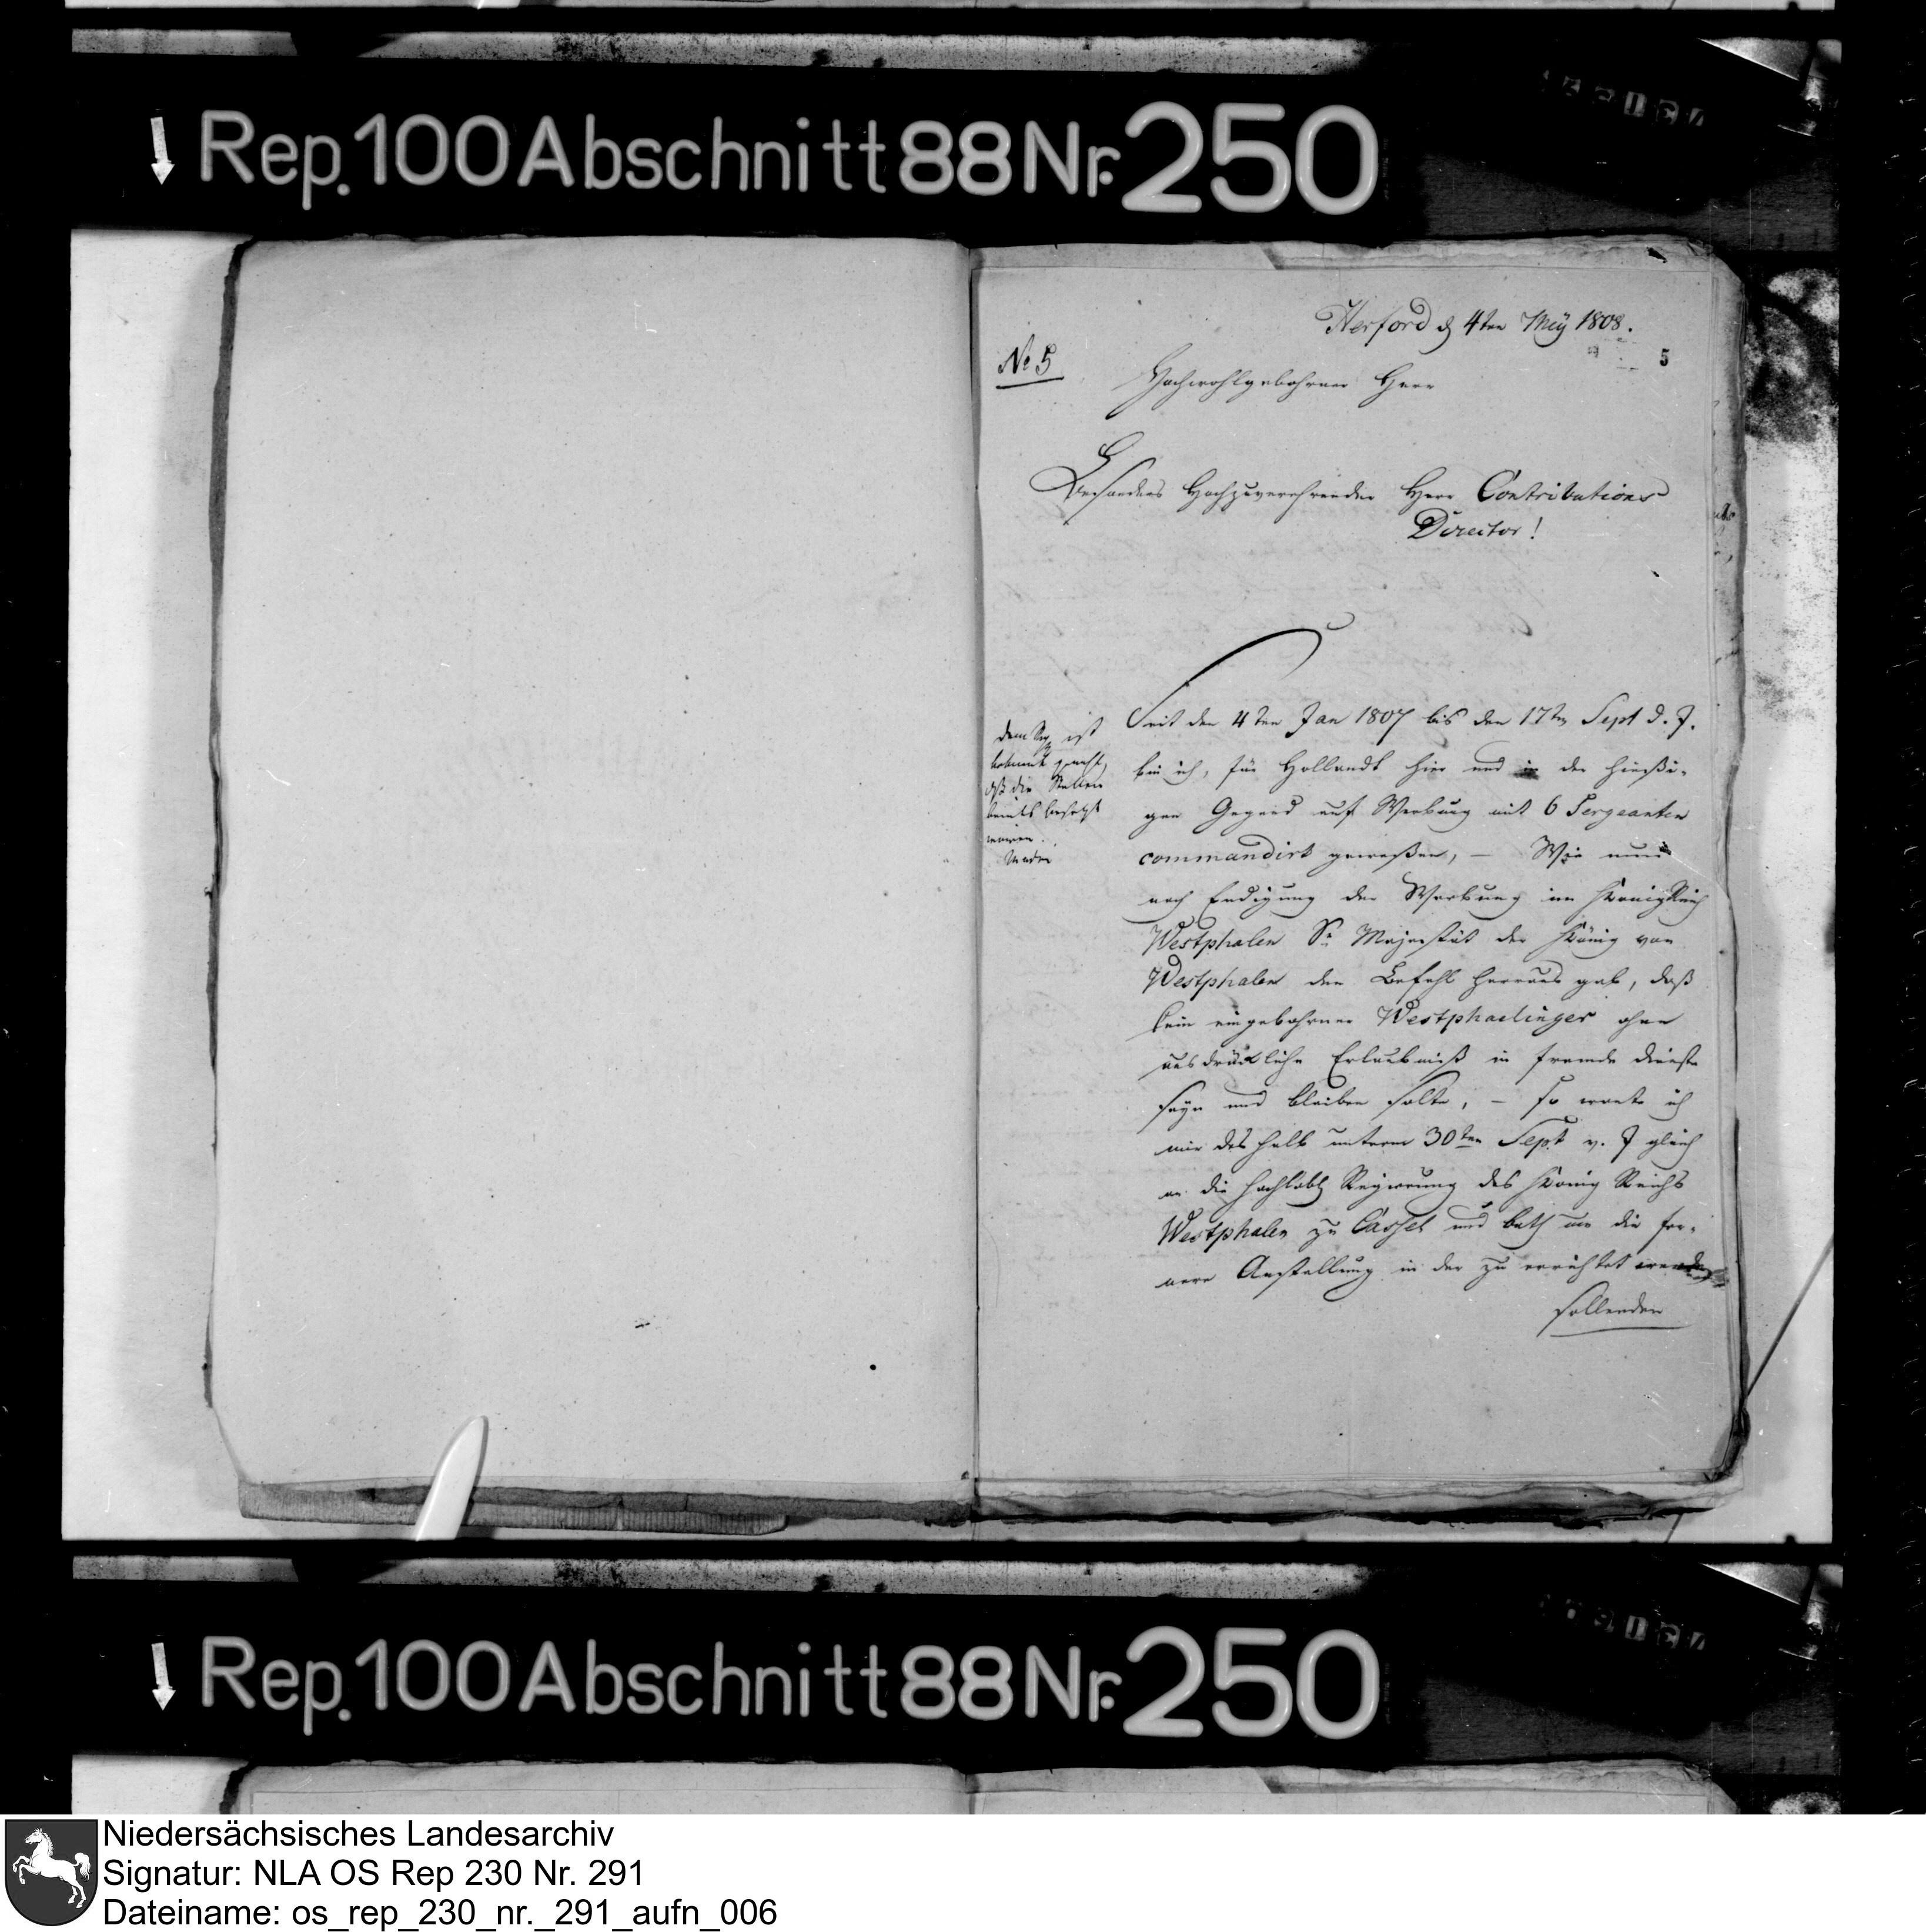 Rep. 100 Abschnitt 88 Nr. 250
Herford d 4ten Mey 1808.
5
No 5
Hochwohlgebohrner Herr
Besonders Hochzuverehrender Herr Contributions
Director!
Seit den 4ten Jan 1807 bis den 17ten Sept d. J.
bin ich, für Hollandt hier und in der hießi-
gen Gegend auf Werbung mit 6 Sergeanten
commandirt geweßen, — Wie nun
nach Endigung der Werbung im KönigReich
Westphalen Sr Majestät der König von
Westphalen den Befehl herraus gab, daß
kein eingebohrner Westphaelinger ohne
ausdrückliche Erlaubniß in fremde Dienste
seyn und bleiben solte, — so wante ich
mir deshalb unterm 30ten Sept v. J gleich
an die hochlobl Regierung des König Reichs
Westphalen zu Cassel und bath um die fer-
nere Anstellung in der zu errichtet werden
sollenden
dem ist
bekannt gemacht,
daß die Stellen
bereits besetzt
wären.
Rep. 100 Abschnitt 88 Nr. 250
Niedersächsisches Landesarchiv
Signatur: NLA OS Rep 230 Nr. 291
Dateiname: os_rep_230_nr._291_aufn_006